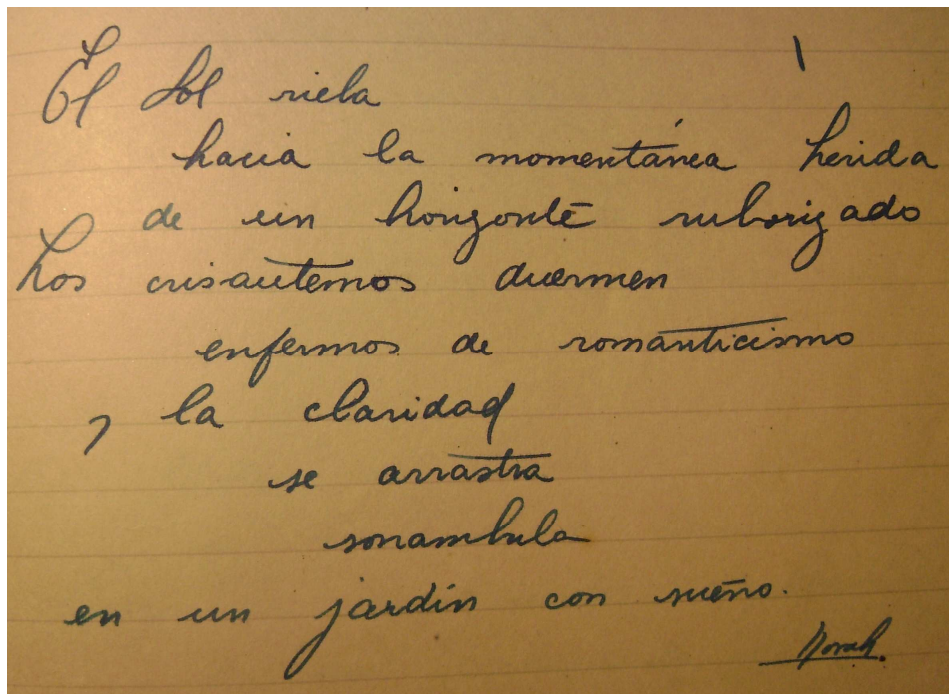 El Sol riela
hacia la momentánea herida
de un horizonte ruborizado
Los crisantemos duermen
enfermos de romanticismo
y la claridad
se arrastra
sonambula
en un jardín con sueño.
Norah.